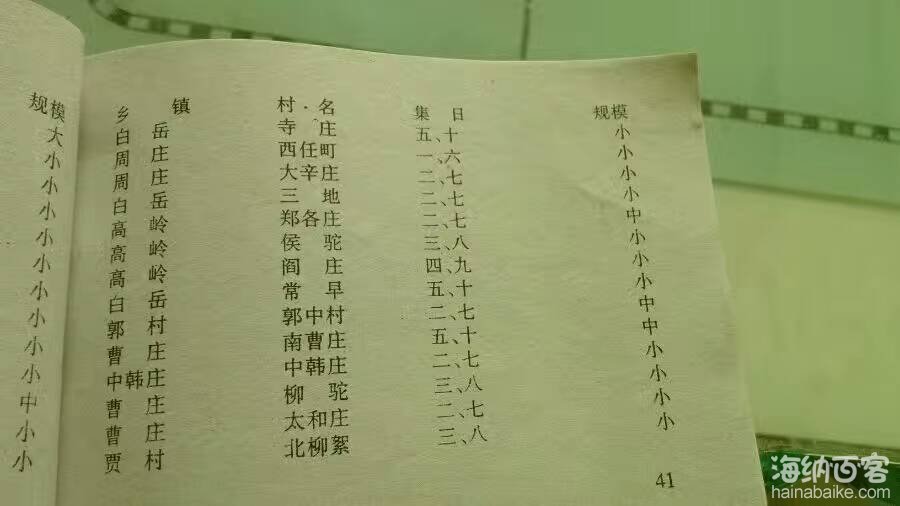 规模
大
小
小
小
小
小
小
小
小
小
中
小
小
乡 镇 村·名 集 日 规模
白 岳 寺 庄 五、十 小
周 庄 西任町 一、六 小
周 庄 大辛庄 二、七 小
白 岳 三 地 二、七 小
高 岭 郑各庄 二、七 中
高 岭 侯 驼 三、八 小
高 岭 阎 庄 四、九 小
白 岳 常 早 五、十 小
郭 村 郭中村 二、七 中
曹 庄 南曹庄 五、十 中
中韩庄 中韩庄 二、七 小
曹 庄 柳 驼 三、八 小
曹 庄 太和庄 二、七 小
贾 村 北柳絮 三、八 小
41
海纳百客
hainabaike.com